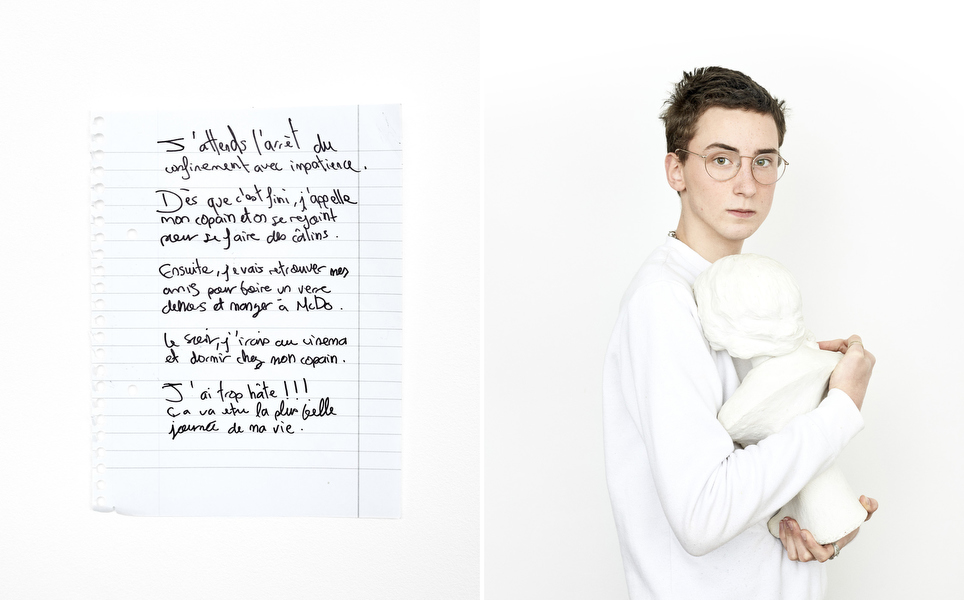 J'attends l'arrêt du
confinement avec impatience.
Dès que c'est fini, j'appelle
mon copain et on se rejoint
pour se faire des câlins.
Ensuite, je vais retrouver mes
amis pour boire un verre
dehors et manger à McDo.
Le soir, j'irais au cinema
et dormir chez mon copain.
J'ai trop hâte !!!
ça va etre la plus belle
journée de ma vie.